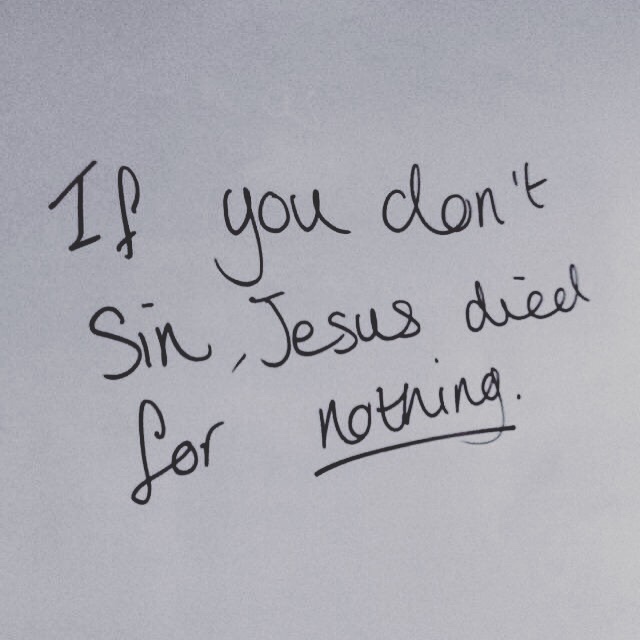 If you don't
Sin, Jesus died
for nothing.